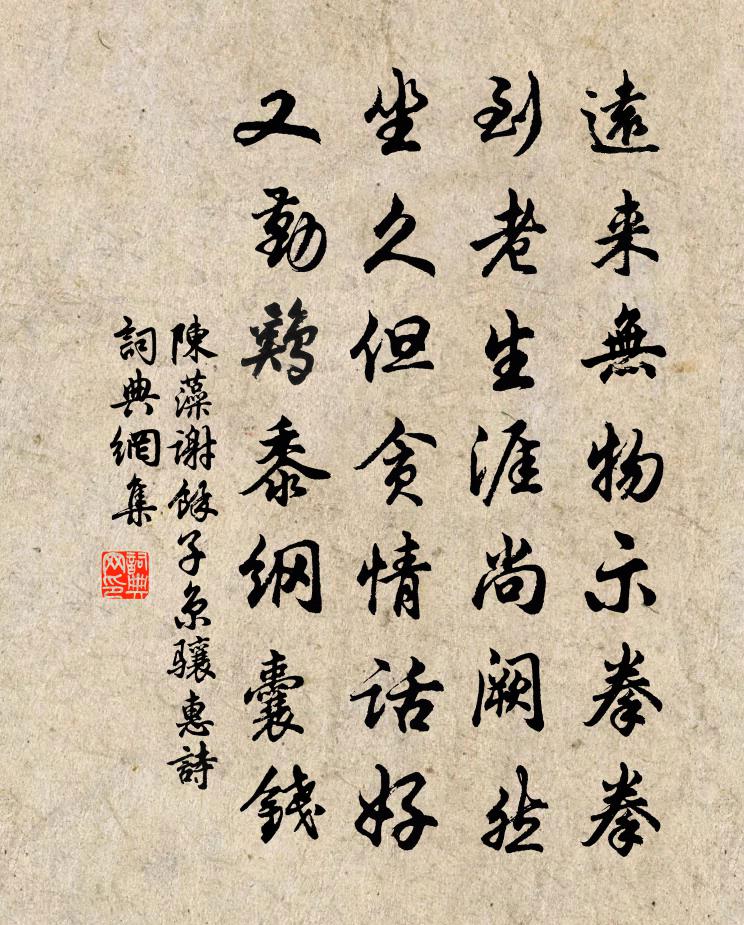 遠来無物示拳拳
到老生涯尚阙然
坐久但貪情話好
又勤鷄黍綱囊錢
陳藻谢餘子京驤惠詩
詞典網集
詞典网印